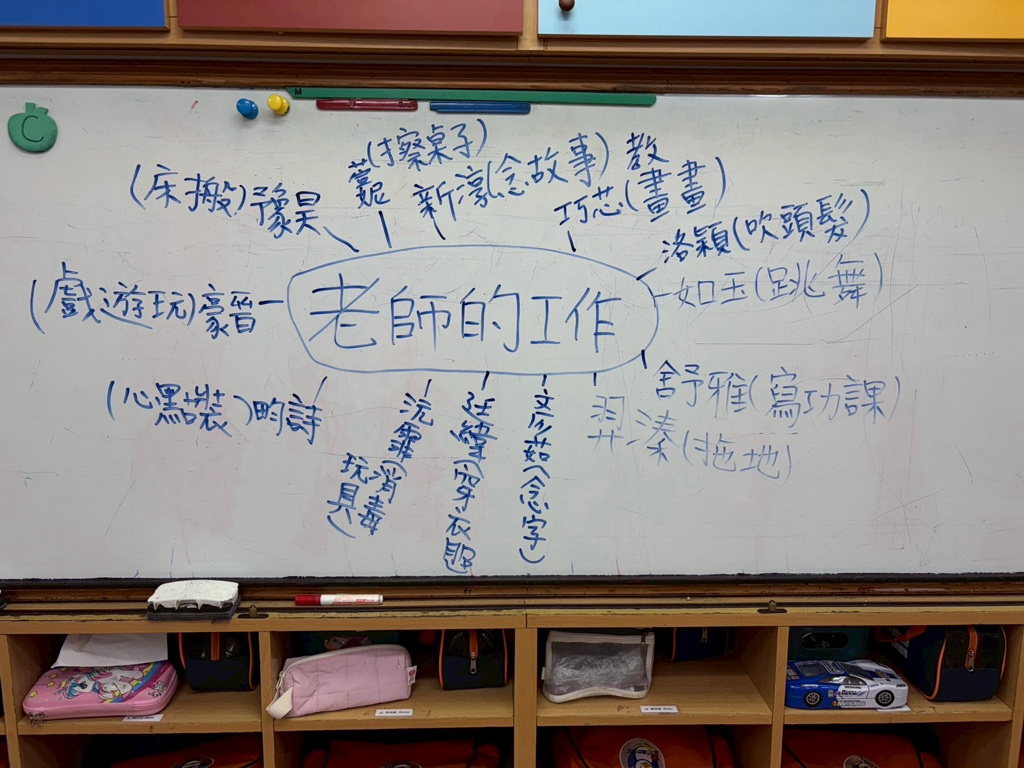 C
M
(擦桌子)
(床搬)豫昊
新濠(念故事)
教
巧芯(畫畫)
洛穎(吹頭髮)
(戲遊玩)豪晉
老師的工作
如玉(跳舞)
(心點裝)昀詩
沅霏(消毒
玩具)
廷緯(穿衣服
文彥茹(念字)
羿溱(拖地)
舒雅(寫功課)